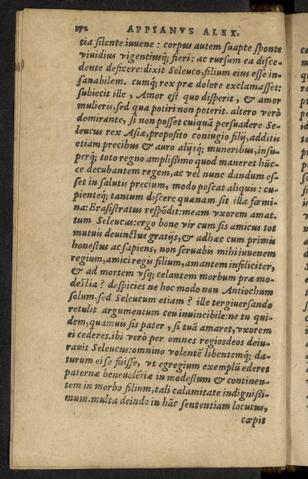 172 APPIANVS ALEX.
tia silente iuuene: corpus autem suapte sponte
viuidius vigentiusq; fieri: ac rursum ea disce
dente deficere: dixit Seleuco, filium eius esse in-
sanabilem. cumq; rex præ dolore exclamasset:
subiecit ille, Amor est quo disperit, & amor
mulieris, sed qua potiri non poterit. altero verò
demirante, si non posset cuiquā persuadere Se-
leucus rex Asiæ, proposito coniugio filij, additis
etiam precibus & auro alijsq; muneribus, insu-
perq; toto regno amplissimo quod maneret hūc-
ce decubantem regem, ac vel nunc dandum es-
set in salutis precium, modo poscat aliquis: cu-
pienteq; tantum discere quænam sit illa fœmi-
na: Erasistratus respōdit: meam vxorem amat.
tum Seleucus: ergo bone vir cum sis amicus tot
mutuis deuinctus gratijs, & adhæc cum primis
honestus ac sapiens, non seruabis mihi iuuenem
regium, amici regis filium, amantem infeliciter,
& ad mortem vsq; celantem morbum præ mo-
destia? despicies ne hoc modo non Antiochum
solum, sed Seleucum etiam? ille tergiuersando
retulit argumentum ceu inuincibile: ne tu qui-
dem, quamuis sis pater, si tuā amaret, vxorem
ei cederes. ibi verò per omnes regios deos deiu-
rauit Seleucus: omnino volentē libentemq; da-
turum eise fuisse, vt egregium exemplū ederet
paternæ beneuolētiæ in modestum & continen-
tem in morbo filium, tali calamitate indignissi-
mum. multa deinde in hāc sententiam locutus,
cœpit